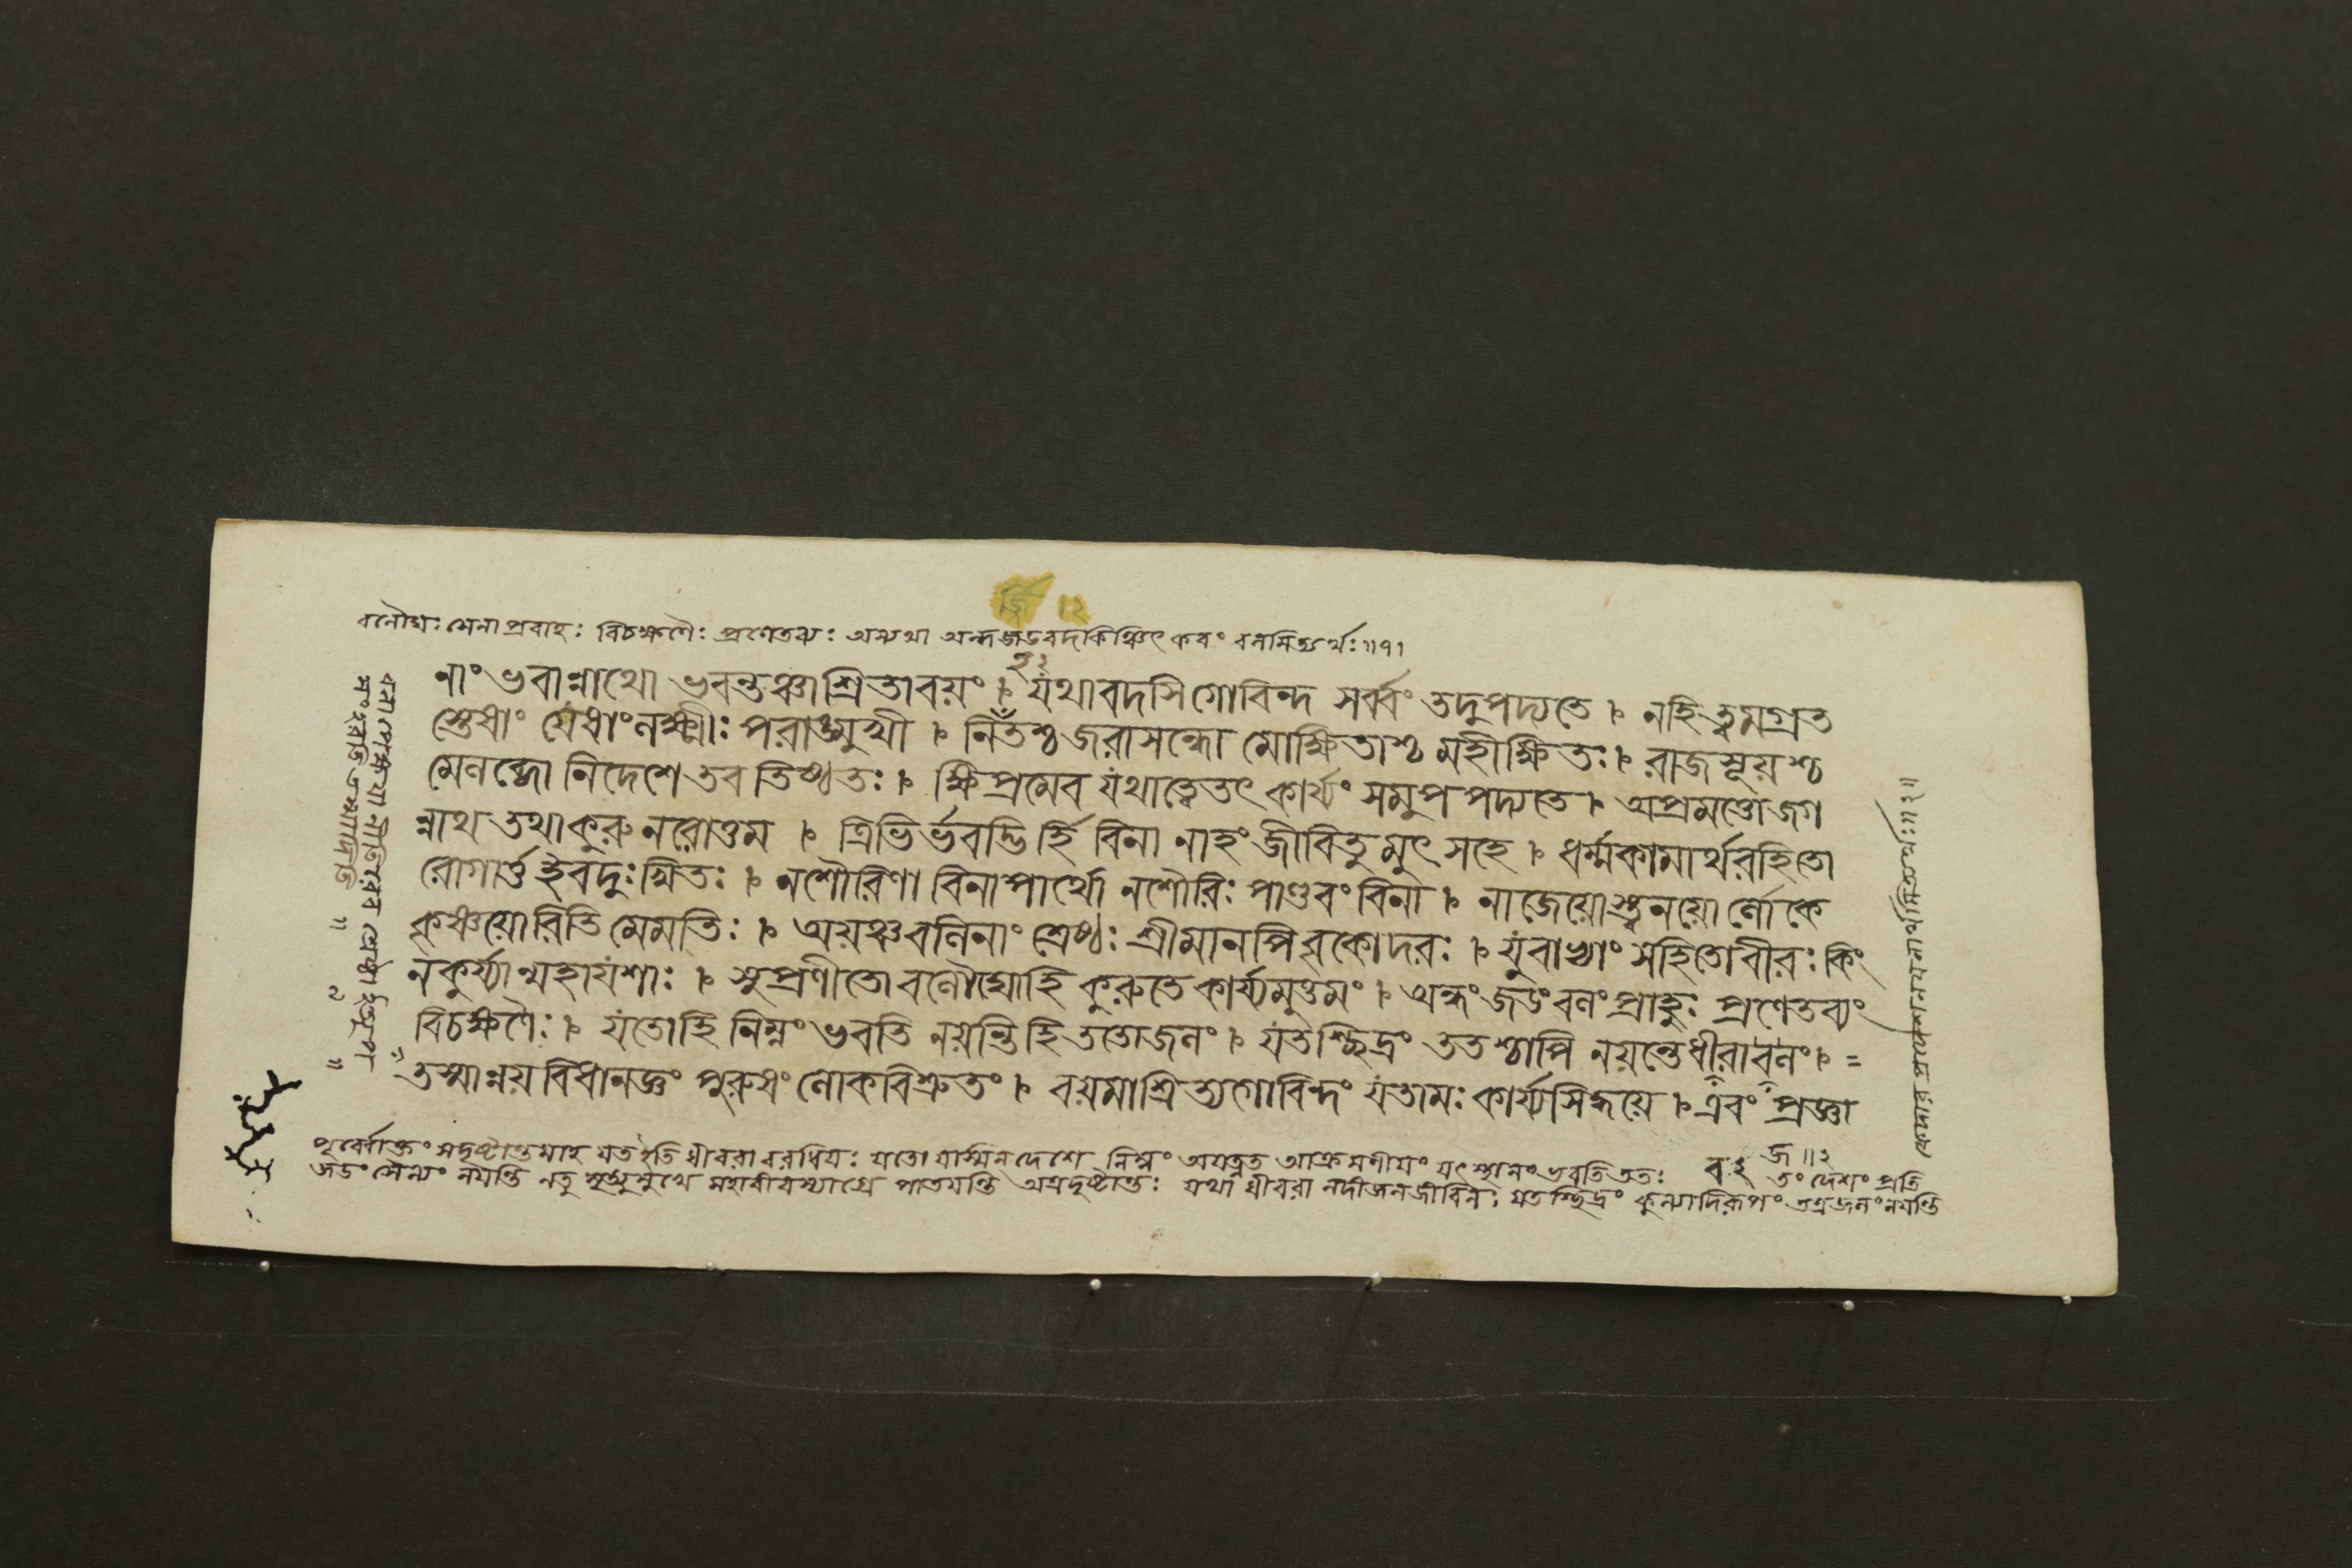 বলৌঘঃ সেনাপ্রবাহঃ বিচক্ষণৈঃ প্রণেতব্যঃ অন্যথা অন্ধজডবদকিঞ্চিৎকরং বলমিত্যর্থঃ॥৭১
নাং ভবান্নাথো ভবন্তঞ্চাশ্রিতাবয়ং । যথাবদসিগোবিন্দ সর্ব্বং তদুপপদ্যতে । নহিত্বমগ্রত
স্তেষাং যেষাং লক্ষ্মীঃ পরাঙ্মুখী । নিহতশ্চ জরাসন্ধো মোক্ষিতাশ্চ মহীক্ষিতঃ । রাজসূয়শ্চ
মেলব্ধো নিদেশে তব তিষ্ঠতঃ । ক্ষিপ্রমেব যথাত্বেতৎ কার্য্যং সমুপপদ্যতে । অপ্রমত্তোজগ
ন্নাথ তথাকুরু নরোত্তম । ত্রিভির্ভবদ্ভির্হি বিনা নাহং জীবিতুমুৎসহে । ধর্ম্মকামার্থরহিতো
রোগার্ত্ত ইবদুঃখিতঃ । নশৌরিণা বিনাপার্থো নশৌরিঃ পাণ্ডবং বিনা । নাজেয়োস্ত্যনয়োর্লোকে
কৃষ্ণয়োরিতি মেমতিঃ । অয়ঞ্চবলিনাং শ্রেষ্ঠঃ শ্রীমানপি বৃকোদরঃ । যুবাভ্যাং সহিতোবীরঃ কিং
নকুর্য্যান্মহাযশাঃ । সুপ্রণীতো বলৌঘোহি কুরুতে কার্য্যমুত্তমং । অন্ধং জডং বলং প্রাহুঃ প্রণেতব্যং
বিচক্ষণৈঃ । যতোহি নিম্নং ভবতি নয়ন্তি হি ততোজলং । যতশ্ছিদ্রং ততশ্চাপি নয়ন্তেধীরাবলং । =
তস্মান্নয়বিধানজ্ঞং পুরুষং লোকবিশ্রুতং । বয়মাশ্রিত্যগোবিন্দং যতামঃ কার্য্যসিদ্ধয়ে । এবং প্রজ্ঞা
পূর্ব্বোক্তং সদৃষ্টান্তমাহ যতইতি ধীবরা বরধিয়ঃ যতো যস্মিন দেশে নিম্নং অযত্নত আক্রমণীয়ং যৎ স্থানং ভবতি ততঃ তং দেশং প্রতি
জডং সৈন্যং নয়ন্তি নতু মহাবীরস্যাগ্রে পাতয়ন্তি অত্রদৃষ্টান্তঃ যথা ধীবরা নদীজলজীবিনঃ যতশ্ছিদ্রং কুল্যাদিরূপং তত্রজলং নয়ন্তি